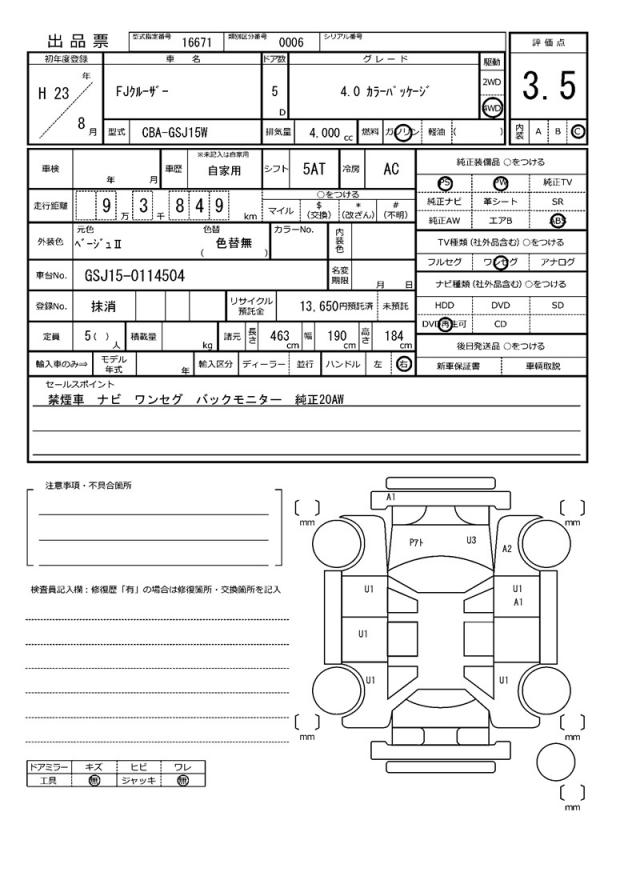 出品票 型式指定番号 16671 類別区分番号 0006 シリアル番号
初年度登録 車名 ドア数 グレード 駆動 評価点
H 23 年 8 月 FJｸﾙｰｻﾞｰ 5 D 4.0 ｶﾗｰﾊﾟｯｹｰｼﾞ 2WD 4WD 3.5
型式 CBA-GSJ15W 排気量 4,000 cc 燃料 ガソリン 軽油 ( ) 内装 A B C
車検 年 月 車歴 ※未記入は自家用 自家用 シフト 5AT 冷房 AC
純正装備品 ○をつける
PS PW 純正TV
純正ナビ 革シート SR
純正AW エアB ABS
走行距離 9 万 3 千 8 4 9 km ○をつける マイル $ (交換) * (改ざん) # (不明)
TV種類 (社外品含む) ○をつける
フルセグ ワンセグ アナログ
外装色 元色 ﾍﾞｰｼﾞｭⅡ 色替 ( 色替無 ) カラーNo. 内装色
車台No. GSJ15-0114504 名変期限 月 日
ナビ種類 (社外品含む) ○をつける
HDD DVD SD
DVD再生可 CD
登録No. 抹消 リサイクル預託金 13,650円預託済 未預託
定員 5 ( ) 人 積載量 kg 諸元 長さ 463 cm 幅 190 cm 高さ 184 cm
後日発送品 ○をつける
新車保証書 車輌取説
輸入車のみ⇒ モデル年式 年 輸入区分 ディーラー 並行 ハンドル 左 右
セールスポイント
禁煙車 ナビ ワンセグ バックモニター 純正20AW
注意事項・不具合箇所
検査員記入欄：修復歴「有」の場合は修復箇所・交換箇所を記入
A1
mm mm
Pｱﾄ U3 A2
U1 U1
A1
U1
U1 U1
mm mm
mm
ドアミラー キズ ヒビ ワレ
工具 無 ジャッキ 無